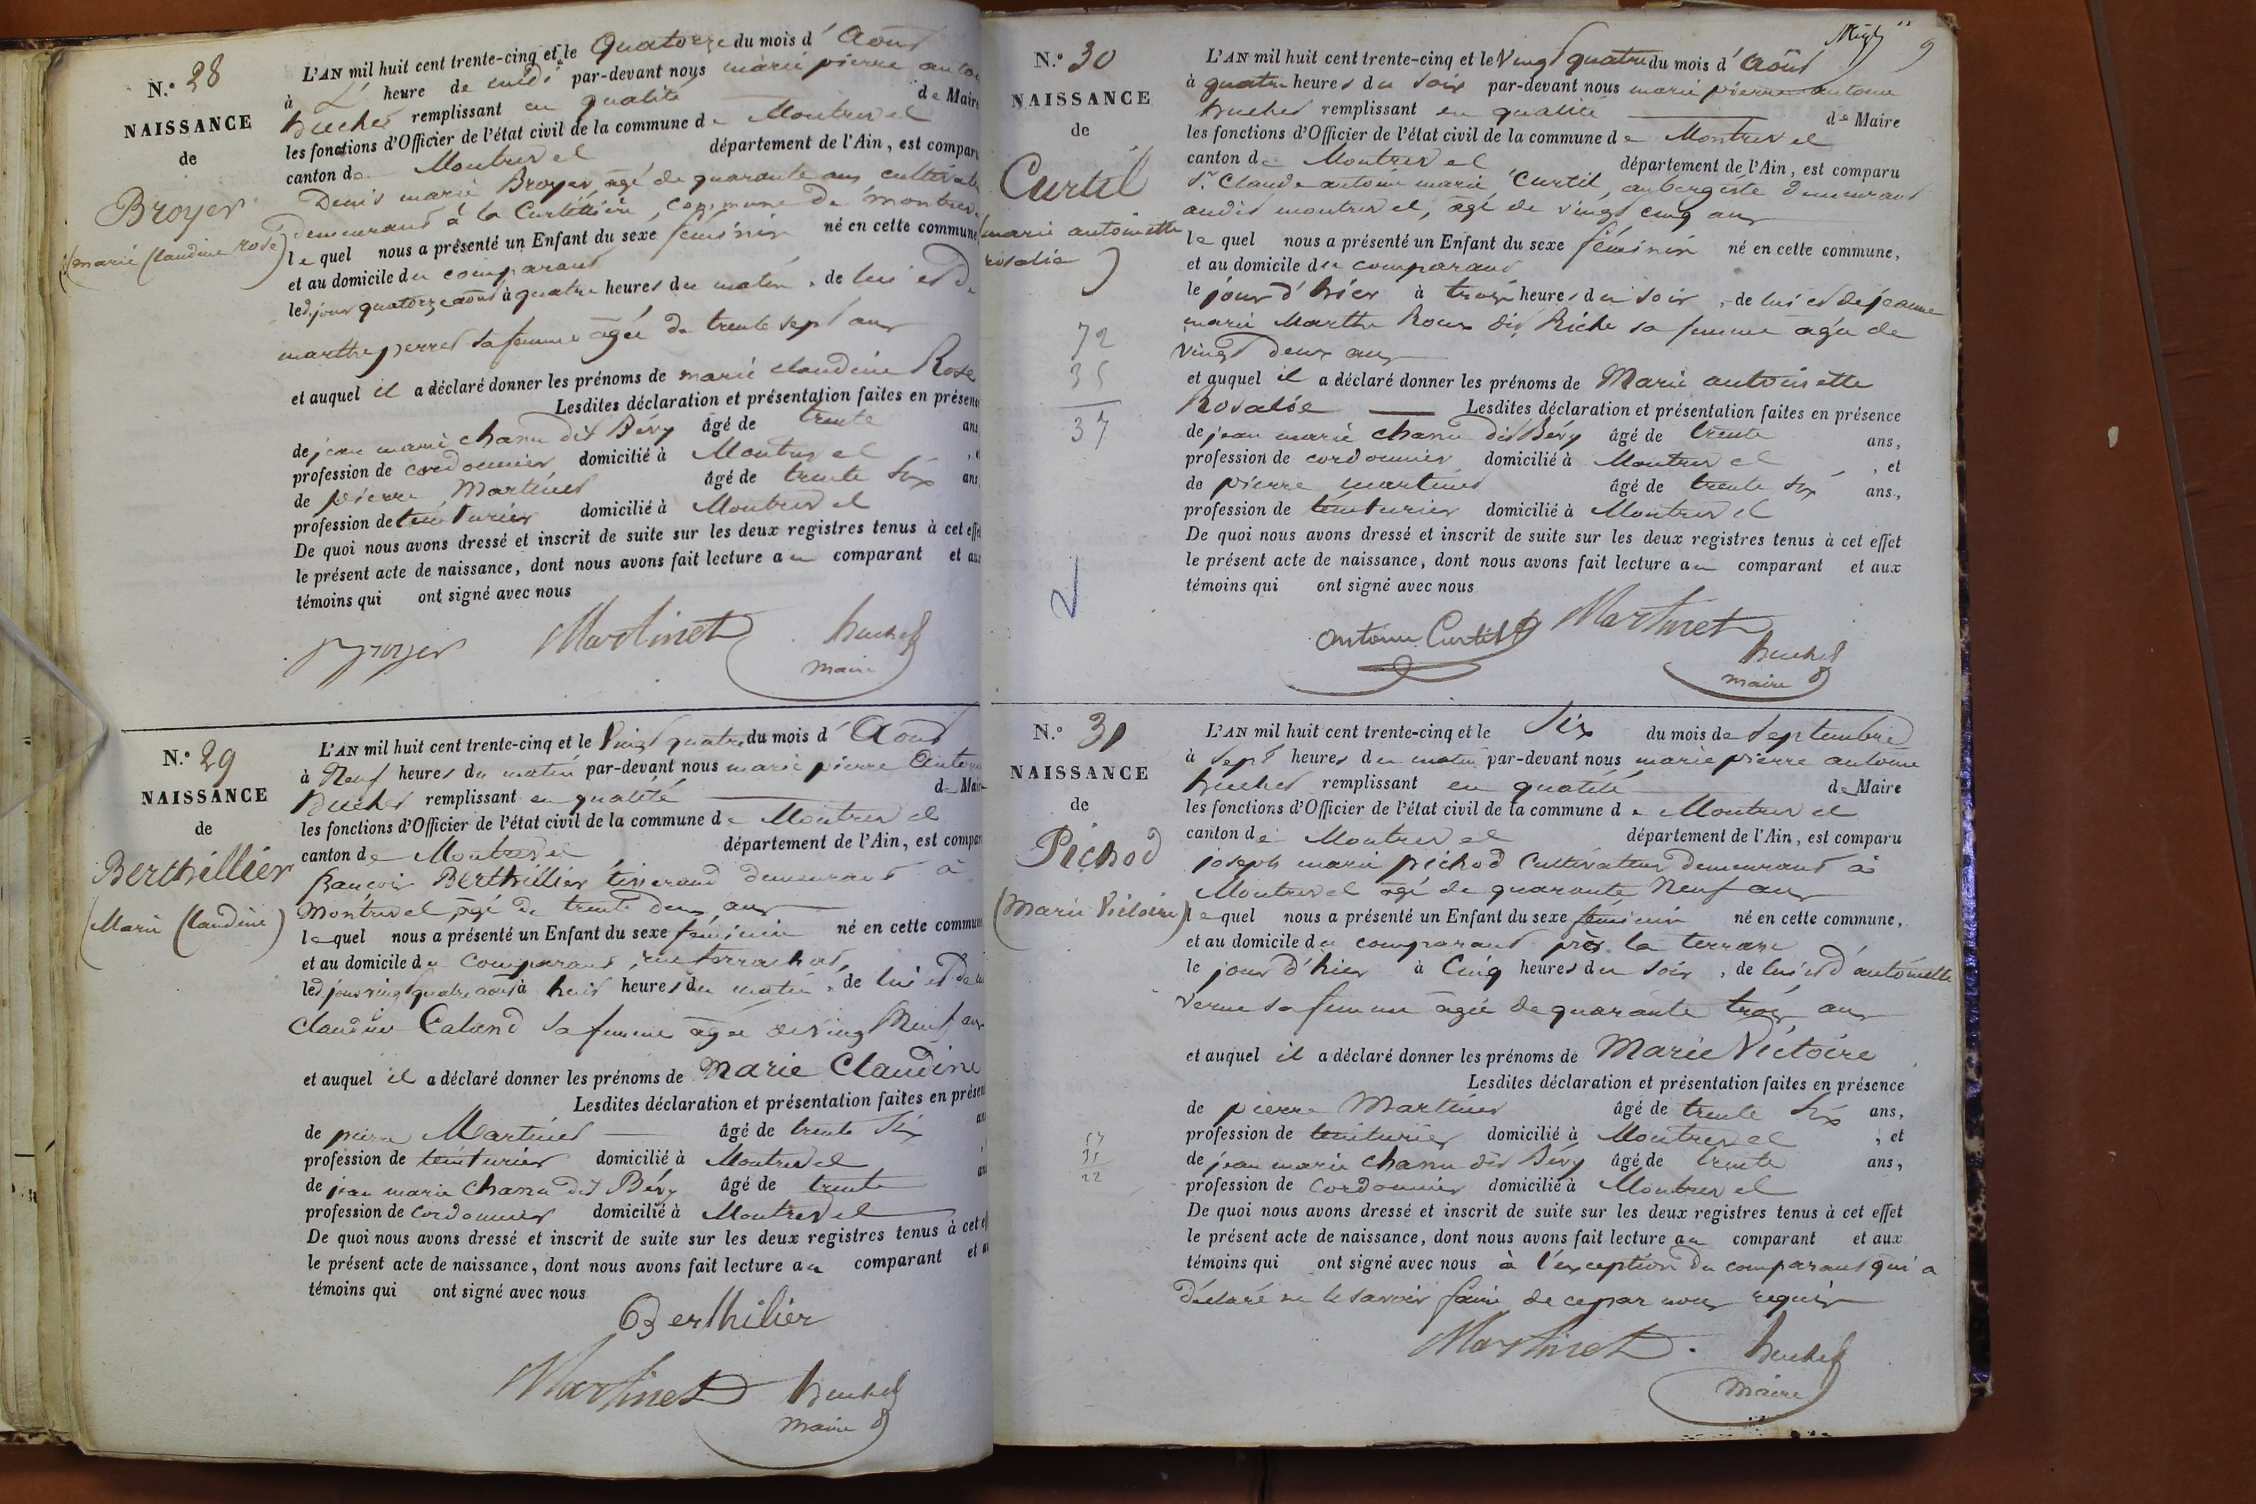 N.° 28
NAISSANCE
de
Broyer
(marie Claudine Rose)
L'AN mil huit cent trente-cinq et le Quatorze du mois d'Aout
à L' heure de midi par-devant nous marie pierre anto
huchet remplissant en qualité de Maire
les fonctions d'Officier de l'état civil de la commune de Montrevel
canton de Montrevel département de l'Ain, est compar
Denis marie Broyer, agé de quarante ans cultivate
demeurant à la Curtillière, commune de montrev
lequel nous a présenté un Enfant du sexe féminin né en cette commune
et au domicile du comparant
led. jour quatorze aout à quatre heures du matin, de lui et d
marthe perret sa femme agée de trente sept ans
et auquel il a déclaré donner les prénoms de marie claudine Rose
Lesdites déclaration et présentation faites en présenc
de jean marie chanu dit Bévy âgé de trente ans
profession de cordonnier domicilié à Montrevel , e
de pierre Martinet âgé de trente six ans
profession de teinturier domicilié à Montrevel
De quoi nous avons dressé et inscrit de suite sur les deux registres tenus à cet effe
le présent acte de naissance, dont nous avons fait lecture au comparant et aux
témoins qui ont signé avec nous
Broyer Martinet huchet
maire
N.° 29
NAISSANCE
de
Berthillier
(Marie Claudine)
L'AN mil huit cent trente-cinq et le Vingt quatre du mois d'Aout
à Neuf heures du matin par-devant nous marie pierre Antoin
huchet remplissant en qualité de Mair
les fonctions d'Officier de l'état civil de la commune de Montrevel
canton de Montrevel département de l'Ain, est compar
françois Berthillier tisserand demeurant à
Montrevel agé de trente deux ans
lequel nous a présenté un Enfant du sexe féminin né en cette commun
et au domicile du comparant,
led. jour vingt quatre aout à huit heures du matin, de lui et de
claudine Caland sa femme agée de vingt Neuf ans
et auquel il a déclaré donner les prénoms de Marie Claudine
Lesdites déclaration et présentation faites en présen
de pierre Martinet âgé de trente six an
profession de teinturier domicilié à Montrevel
de jean marie chanu dit Bévy âgé de trente an
profession de cordonnier domicilié à Montrevel
De quoi nous avons dressé et inscrit de suite sur les deux registres tenus à cet ef
le présent acte de naissance, dont nous avons fait lecture au comparant et a
témoins qui ont signé avec nous
Berthilier
Martinet huchet
maire
9
N.° 30
NAISSANCE
de
Curtil
(marie antoinette
rosalie)
72
35
37
L'AN mil huit cent trente-cinq et le Vingt quatre du mois d'Aout
à quatre heures du soir par-devant nous marie pierre antoine
huchet remplissant en qualité de Maire
les fonctions d'Officier de l'état civil de la commune de Montrevel
canton de Montrevel département de l'Ain, est comparu
Sr Claude antoine marie Curtil, aubergiste demeurant
audit montrevel, agé de vingt cinq ans
lequel nous a présenté un Enfant du sexe féminin né en cette commune,
et au domicile du comparant
le jour d'hier à trois heures du soir, de lui et de jeanne
marie Marthe Roux dit Riche sa femme agée de
vingt deux ans
et auquel il a déclaré donner les prénoms de Marie antoinette
Rosalie Lesdites déclaration et présentation faites en présence
de jean marie chanu dit Bévy âgé de trente ans,
profession de cordonnier domicilié à Montrevel , et
de pierre martinet âgé de trente six ans,
profession de teinturier domicilié à Montrevel
De quoi nous avons dressé et inscrit de suite sur les deux registres tenus à cet effet
le présent acte de naissance, dont nous avons fait lecture au comparant et aux
témoins qui ont signé avec nous
Antoine Curtil Martinet
huchet
maire
N.° 31
NAISSANCE
de
Pichod
(Marie Victoire)
L'AN mil huit cent trente-cinq et le Six du mois de Septembre
à Sept heures du matin par-devant nous marie pierre antoine
huchet remplissant en qualité de Maire
les fonctions d'Officier de l'état civil de la commune de Montrevel
canton de Montrevel département de l'Ain, est comparu
joseph marie pichod Cultivateur demeurant à
Montrevel agé de quarante Neuf ans
lequel nous a présenté un Enfant du sexe féminin né en cette commune,
et au domicile du comparant près la terrasse
le jour d'hier à Cinq heures du soir, de lui et d'antoinette
verne sa femme agée de quarante trois ans
et auquel il a déclaré donner les prénoms de Marie Victoire
Lesdites déclaration et présentation faites en présence
de pierre Martinet âgé de trente six ans,
profession de teinturier domicilié à Montrevel , et
de jean marie chanu dit Bévy âgé de trente ans,
profession de Cordonnier domicilié à Montrevel
De quoi nous avons dressé et inscrit de suite sur les deux registres tenus à cet effet
le présent acte de naissance, dont nous avons fait lecture au comparant et aux
témoins qui ont signé avec nous à l'exception du comparant qui a
déclaré ne le savoir faire de ce par nous requis
Martinet huchet
Maire